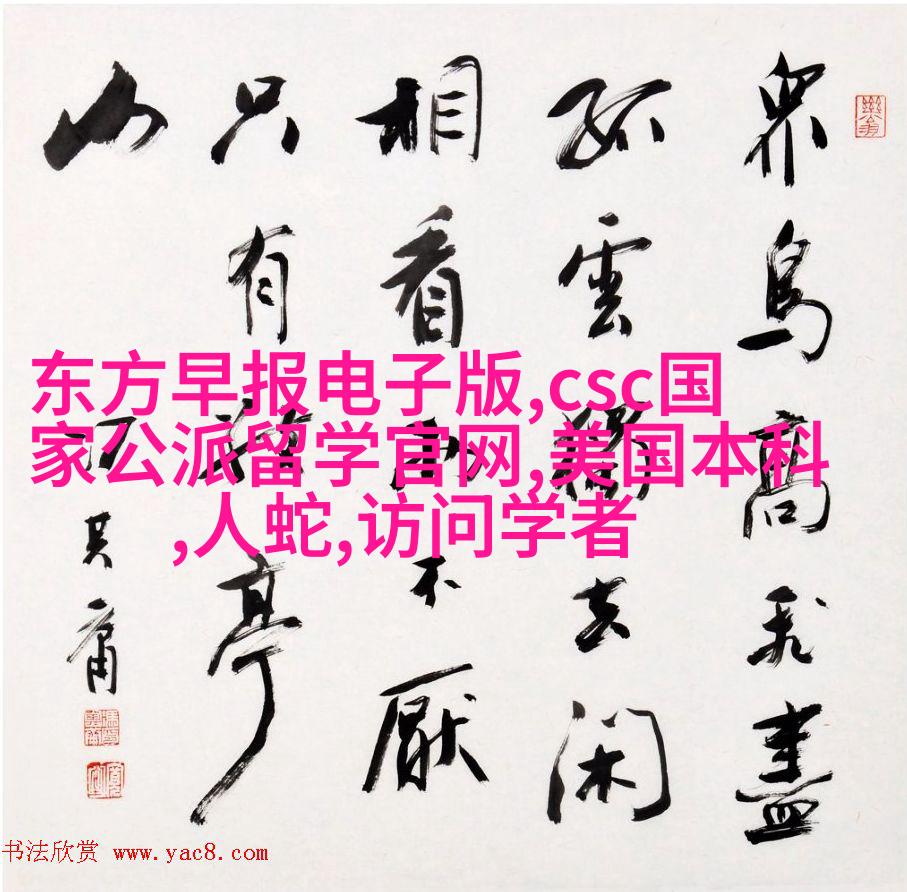 衆鳥高飛盡
孤雲獨去閑
相看兩不厭
只有敬亭
山
其庸
东方早报电子版,csc国
家公派留学官网,美国本科
,人蛇,访问学者
书法欣赏 www.yac8.com